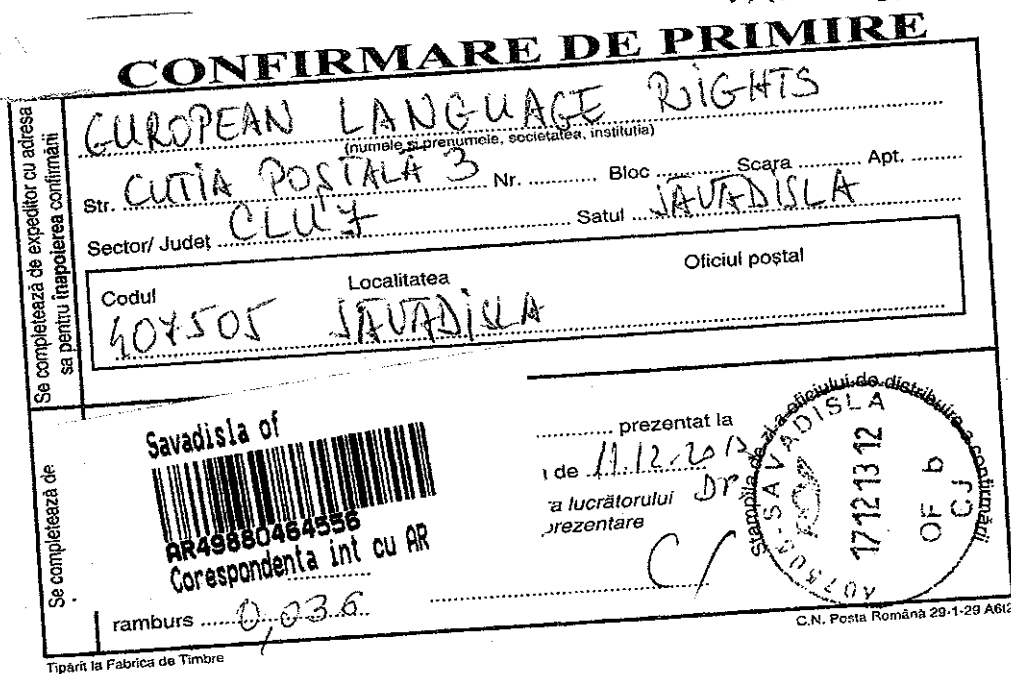 CONFIRMARE DE PRIMIRE
Se completează de expeditor cu adresa
sa pentru înapoierea confirmării
EUROPEAN LANGUAGE RIGHTS
(numele și prenumele, societatea, instituția)
Str. CUTIA POȘTALĂ 3 Nr. .......... Bloc .......... Scara .......... Apt. ..........
Sector/ Județ CLUJ Satul SAVADISLA
Codul Localitatea Oficiul poștal
407505 SAVADISLA
Se completează de
Savadisla of
AR49880464556
Corespondenta int cu AR
ramburs 0,036
prezentat la
de 11.12.2013
a lucrătorului
prezentare
Ștampila de zi a oficiului de distribuire a confirmării
407505-SAVADISLA
17 12 13 12
OF b
CJ
C.N. Poșta Română 29-1-29 A6t2
Tipărit la Fabrica de Timbre